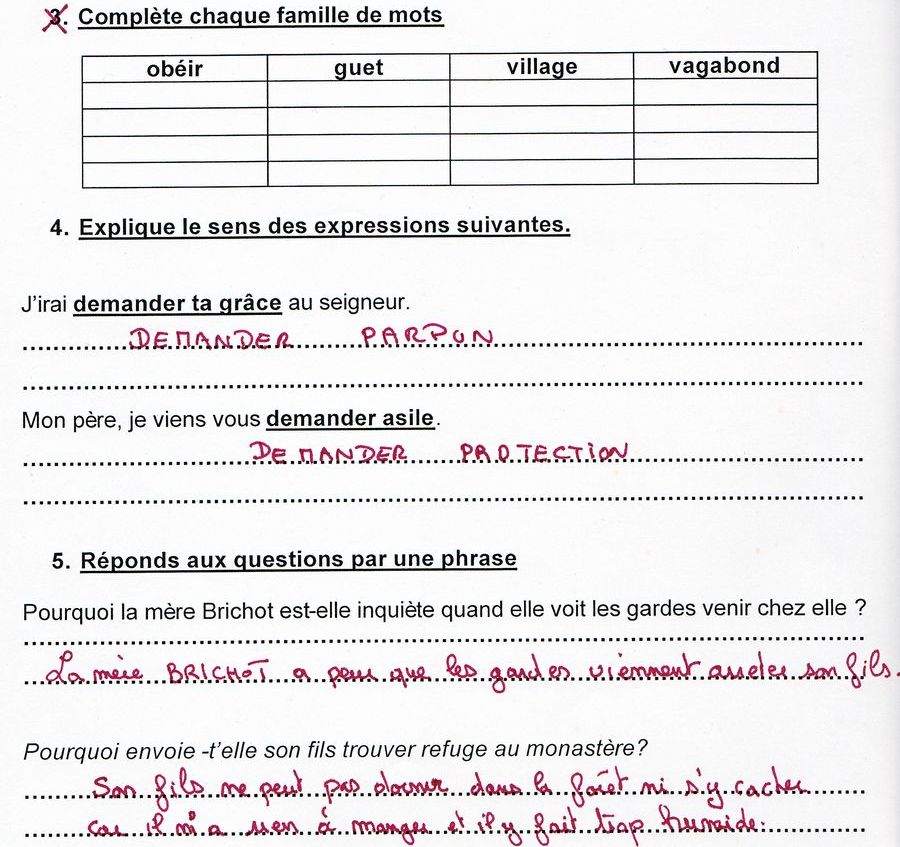 3. Complète chaque famille de mots
obéir guet village vagabond
4. Explique le sens des expressions suivantes.
J'irai demander ta grâce au seigneur.
DEMANDER PARDON
Mon père, je viens vous demander asile.
DEMANDER PROTECTION
5. Réponds aux questions par une phrase
Pourquoi la mère Brichot est-elle inquiète quand elle voit les gardes venir chez elle ?
La mère BRICHOT a peur que les gardes viennent arrêter son fils.
Pourquoi envoie -t'elle son fils trouver refuge au monastère?
Son fils ne peut pas dormir dans la forêt ni s'y cacher
car il n'a rien à manger et il y fait trop humide.